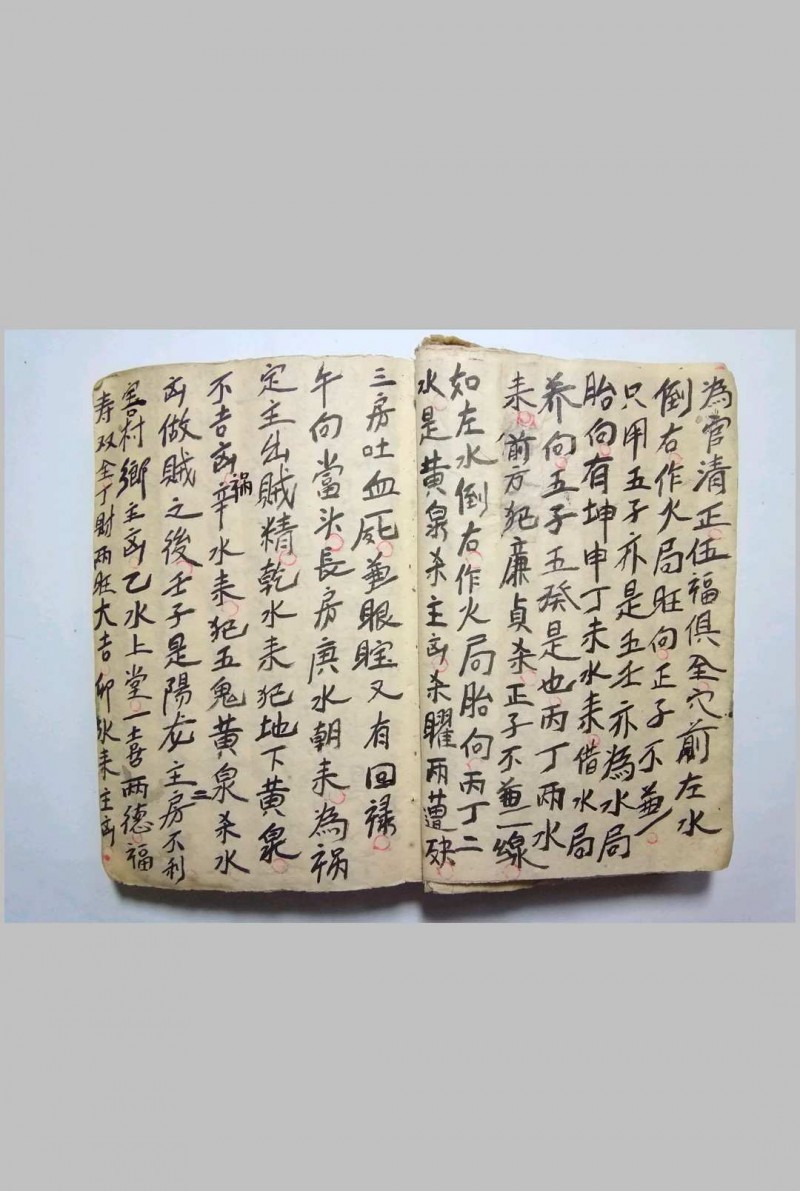 為官清正伍福俱全穴前左水
倒右作火局旺向正子不兼
只用五子亦是五壬亦為水局
胎向有坤申丁未水来借水局
养向五子五癸是也丙丁兩水
来前方犯廉貞杀正子不兼一線
如左水倒右作火局胎向丙丁二
水是黄泉杀主凶杀曜兩遭殃
三房吐血死兼眼瞎又有回禄
午向當头長房庚水朝来為祸
定主出賊精乾水来犯地下黄泉
不吉凶祸辛水来犯五鬼黄泉杀水
凶做賊之後壬子是陽龙主二房不利
害村鄉主凶乙水上堂一喜兩德福
寿双全丁财兩旺大吉卯水来主凶